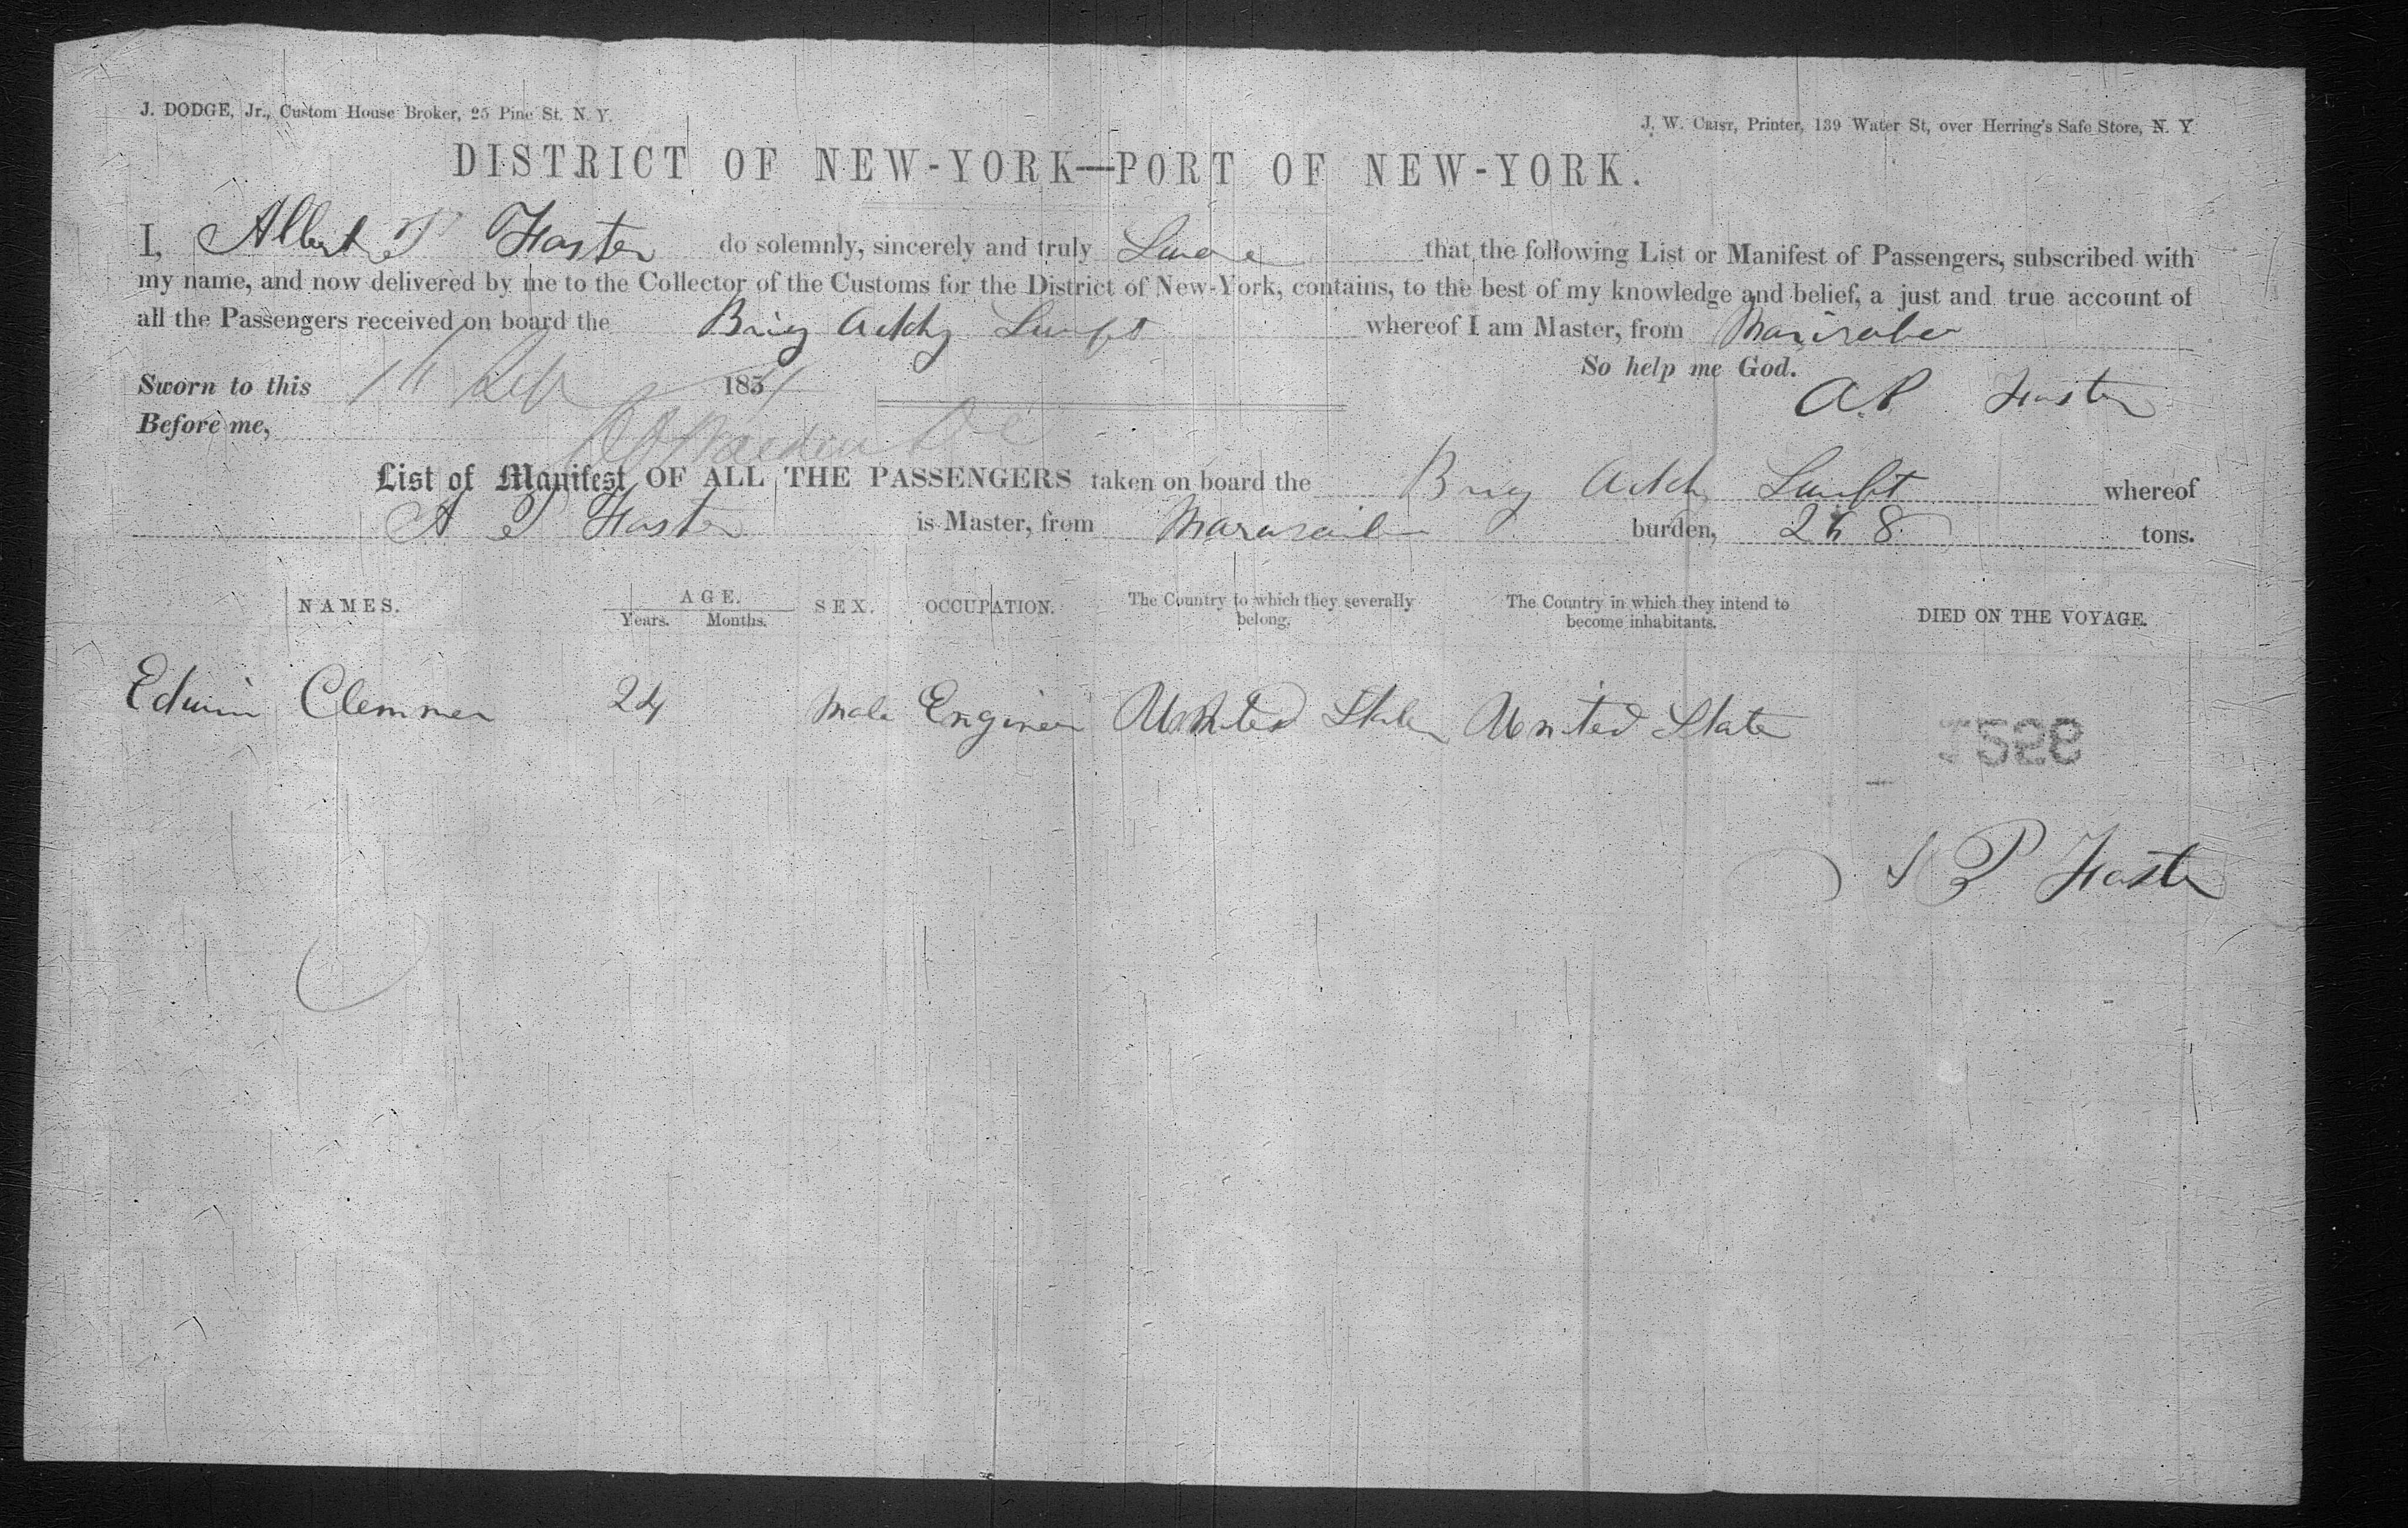 J. DODGE, Jr., Custom House Broker, 25 Pine St. N. Y.
J. W. CRIST, Printer, 139 Water St, over Herring's Safe Store, N. Y
DISTRICT OF NEW-YORK—PORT OF NEW-YORK.
I, Albert P Foster do solemnly, sincerely and truly that the following List or Manifest of Passengers, subscribed with
my name, and now delivered by me to the Collector of the Customs for the District of New-York, contains, to the best of my knowledge and belief, a just and true account of
all the Passengers received on board the Brig Addy Swift whereof I am Master, from
So help me God.
Sworn to this 14 Sep 185
A.P. Foster
Before me,
List of Manifest OF ALL THE PASSENGERS taken on board the Brig Addy Swift whereof
A P Foster is Master, from burden, 8 tons.
NAMES. AGE. SEX. OCCUPATION. The Country to which they severally The Country in which they intend to DIED ON THE VOYAGE.
Years. Months. belong. become inhabitants.
Edwin Clemmer 24 Male Engineer United States United State
528
A P Foster